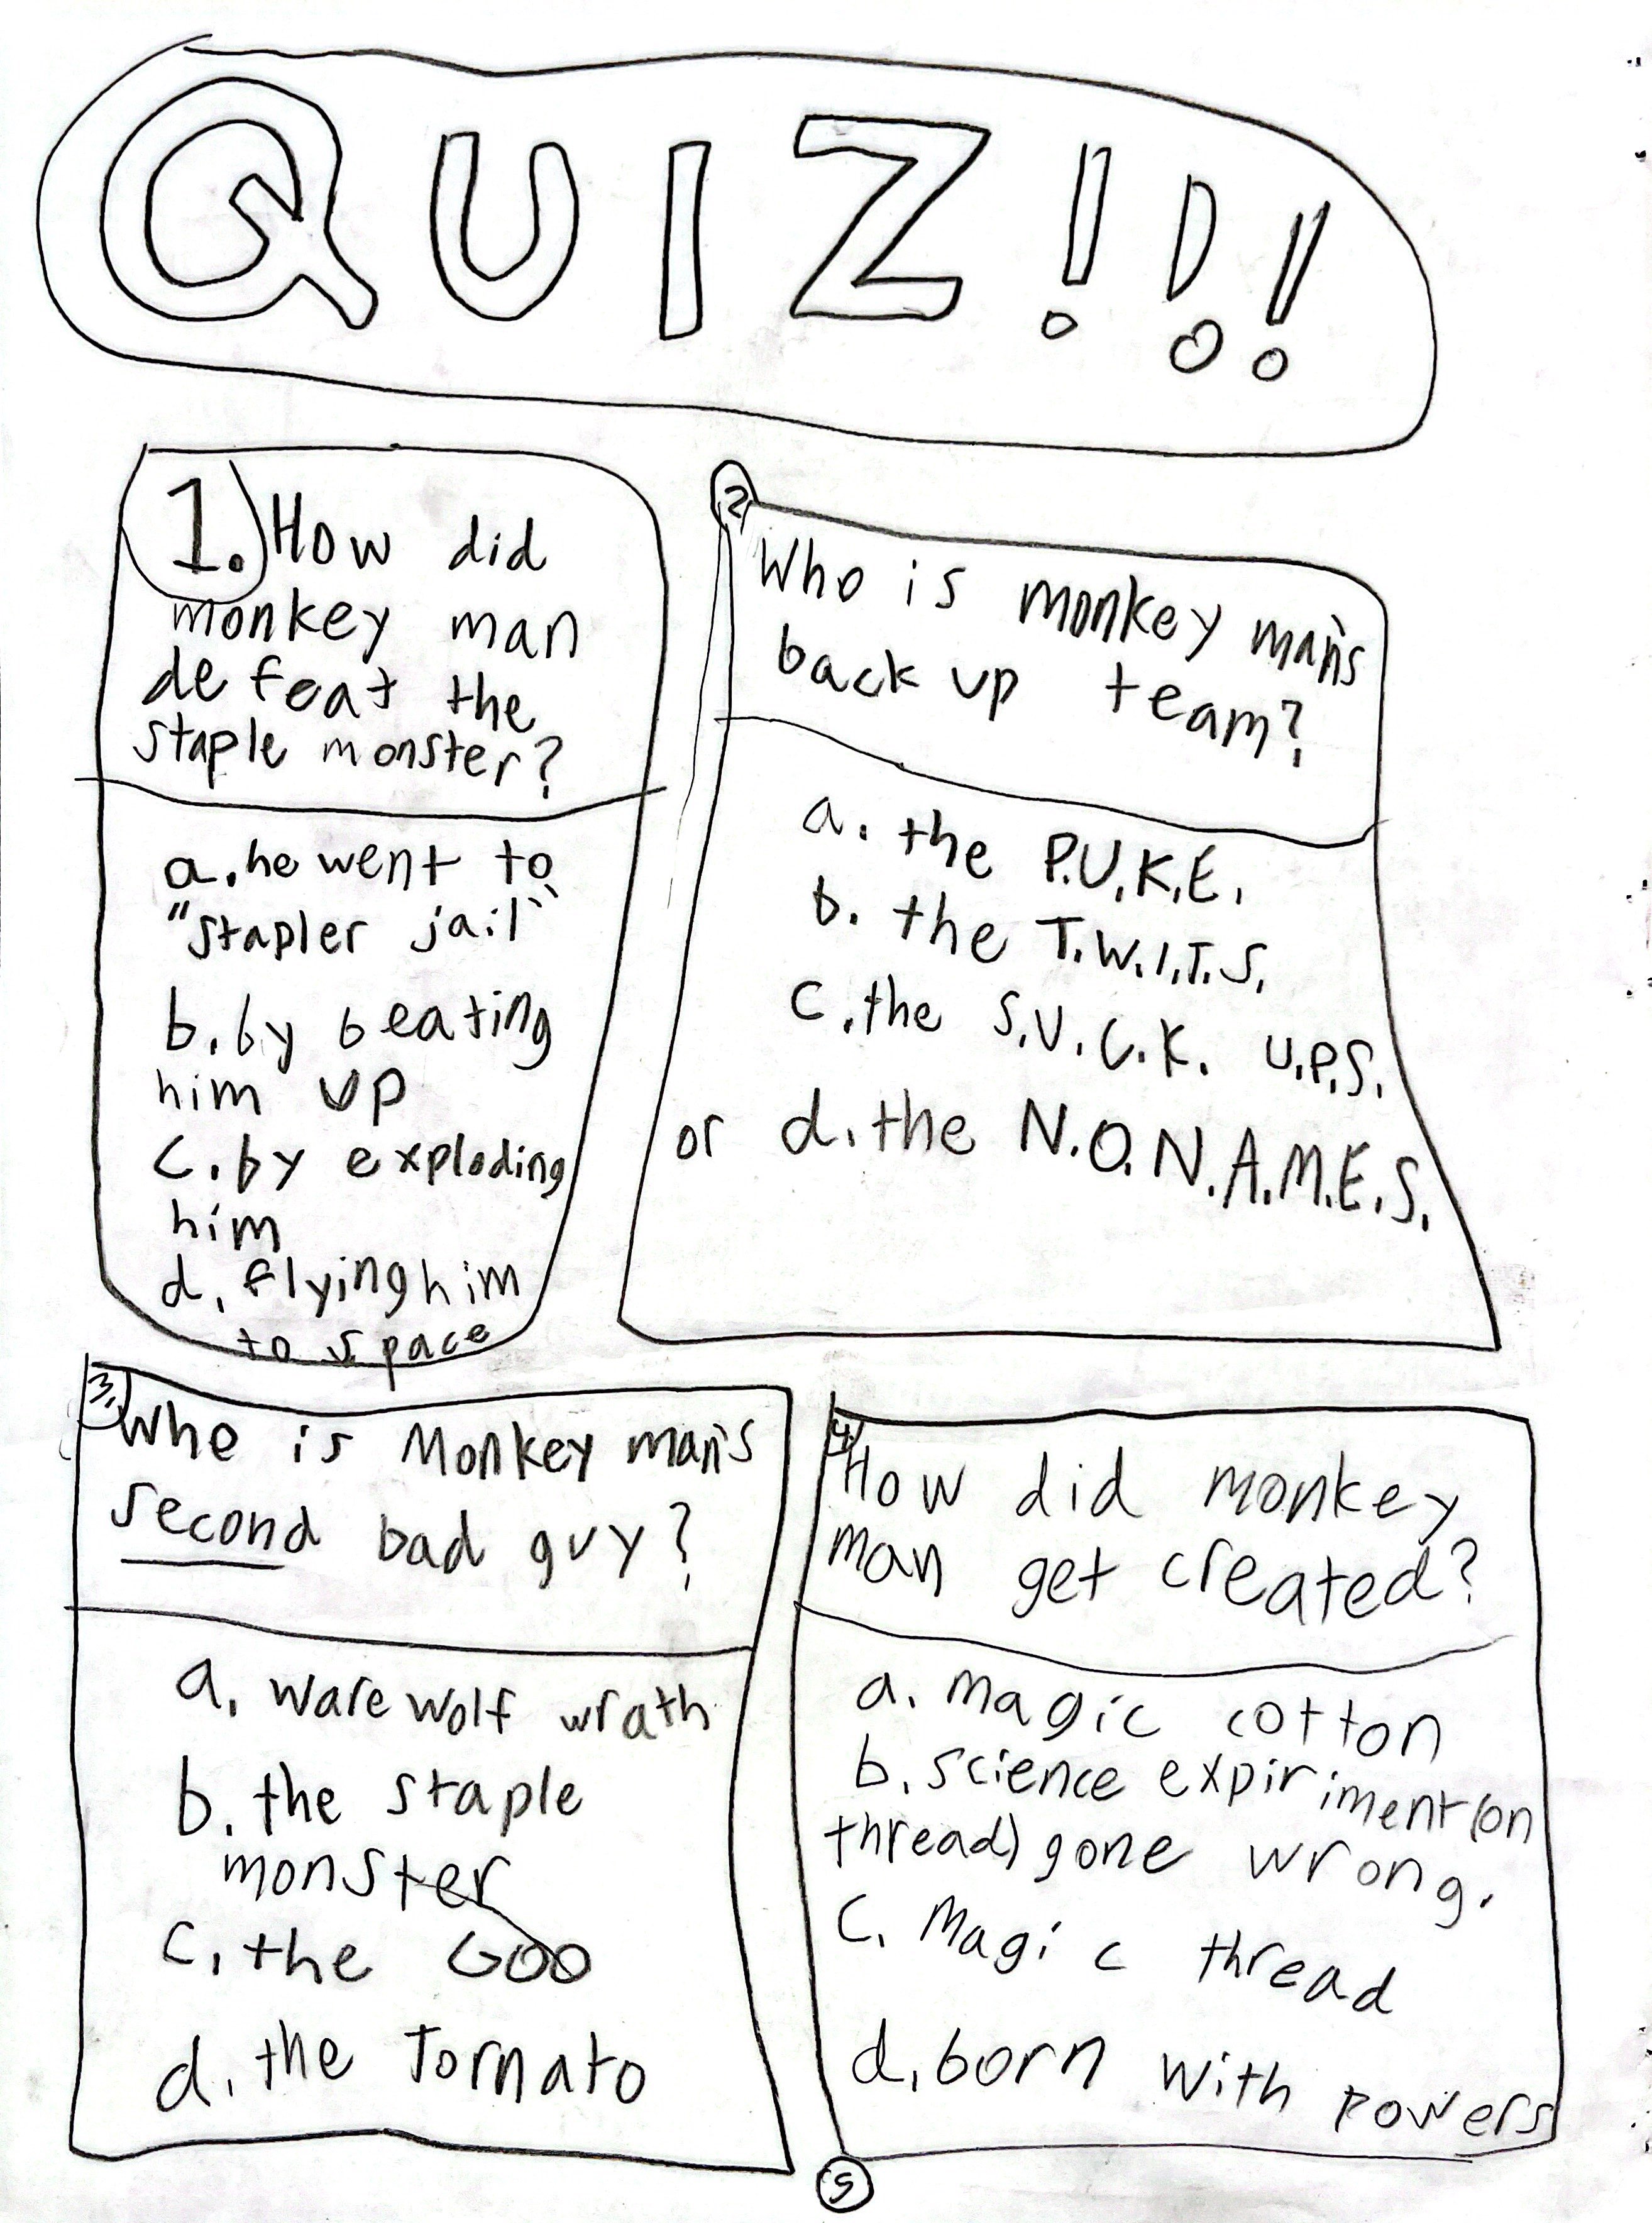 QUIZ!!!
1. How did
monkey man
defeat the
staple monster?
a. he went to
"stapler jail"
b. by beating
him up
c. by exploding
him
d. flying him
to space
2
Who is monkey man's
back up team?
a. the P.U.K.E.
b. the T.W.I.T.S.
c. the S.U.C.K. U.P.S.
or d. the N.O.N.A.M.E.S.
3. Who is Monkey man's
second bad guy?
a. warewolf wrath
b. the staple
monster
c. the Goo
d. the Tornato
4.
How did monkey
man get created?
a. magic cotton
b. science expiriment (on
thread) gone wrong.
c. Magic thread
d. born with powers
5